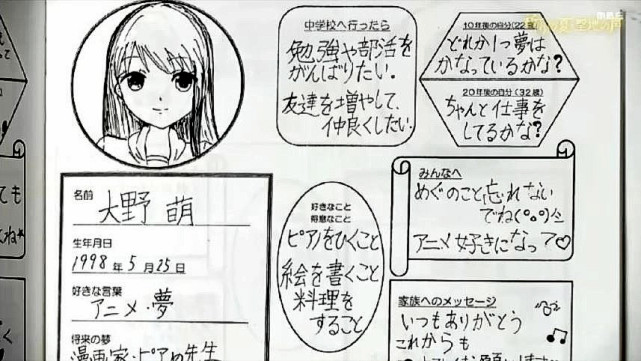 中学校へ行ったら
勉強や部活を
がんばりたい.
友達を増やして、
仲良くしたい.
10年後の自分(22歳)
どれか1つ夢は
かなっているかな?
20年後の自分(32歳)
ちゃんと仕事を
してるかな?
みんなへ
めぐのこと忘れない
でね(°o°)
アニメ好きになって♡
名前
大野 萌
生年月日
1998年5月25日
好きな言葉
アニメ・夢
将来の夢
漫画家・ピアノの先生
好きなこと
得意なこと
ピアノをひくこと
絵を書くこと
料理を
すること
家族へのメッセージ
いつもありがとう
これからも
ても
てね*